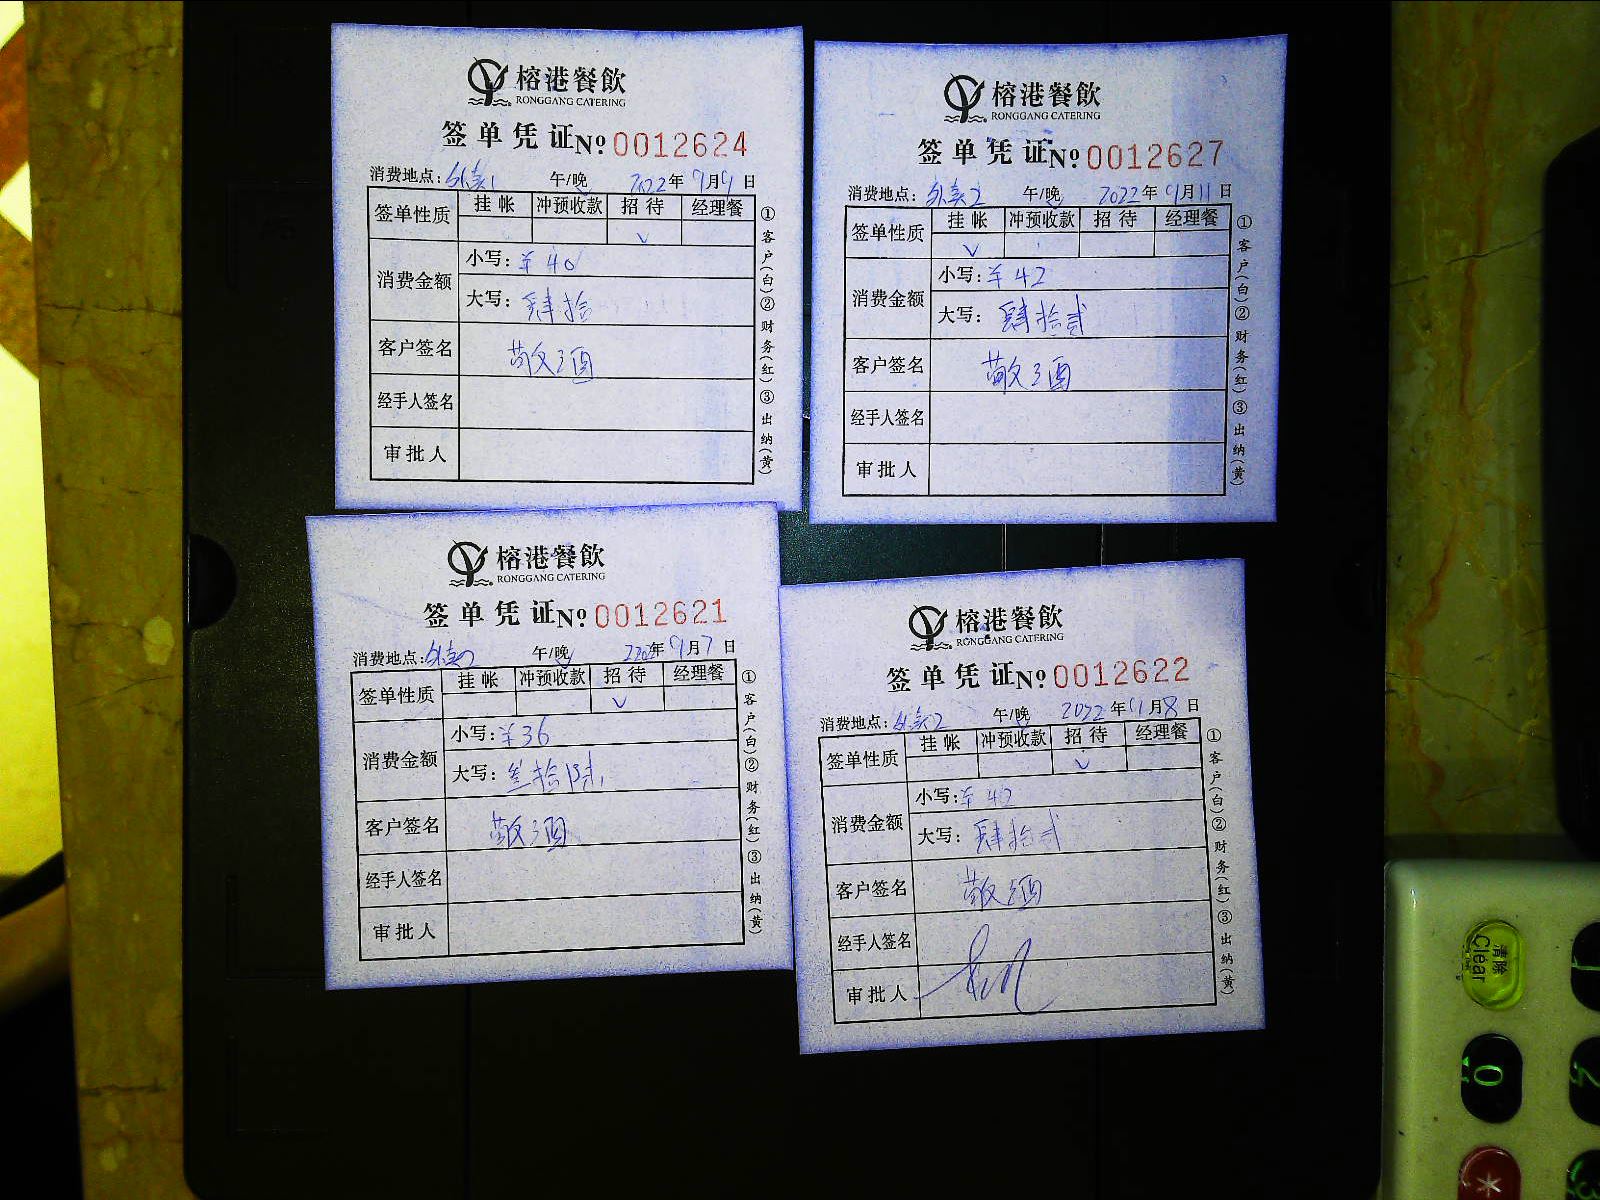 榕港餐飲
RONGGANG CATERING
签单凭证 №0012624
消费地点：外卖1 午/晚 2022年9月9日
签单性质 挂帐 冲预收款 招待 经理餐
✓
消费金额 小写：¥40
大写：肆拾
客户签名
经手人签名
审批人
①客户(白)②财务(红)③出纳(黄)
榕港餐飲
RONGGANG CATERING
签单凭证 №0012627
消费地点：外卖2 午/晚 2022年9月11日
签单性质 挂帐 冲预收款 招待 经理餐
✓
消费金额 小写：¥42
大写：肆拾贰
客户签名
经手人签名
审批人
①客户(白)②财务(红)③出纳(黄)
榕港餐飲
RONGGANG CATERING
签单凭证 №0012621
消费地点：外卖2 午/晚 年9月7日
签单性质 挂帐 冲预收款 招待 经理餐
✓
消费金额 小写：¥36
大写：叁拾陆
客户签名
经手人签名
审批人
①客户(白)②财务(红)③出纳(黄)
榕港餐飲
RONGGANG CATERING
签单凭证 №0012622
消费地点：外卖2 午/晚 2022年9月8日
签单性质 挂帐 冲预收款 招待 经理餐
✓
消费金额 小写：¥42
大写：肆拾贰
客户签名
经手人签名
审批人
①客户(白)②财务(红)③出纳(黄)
清除
Clear
0
*